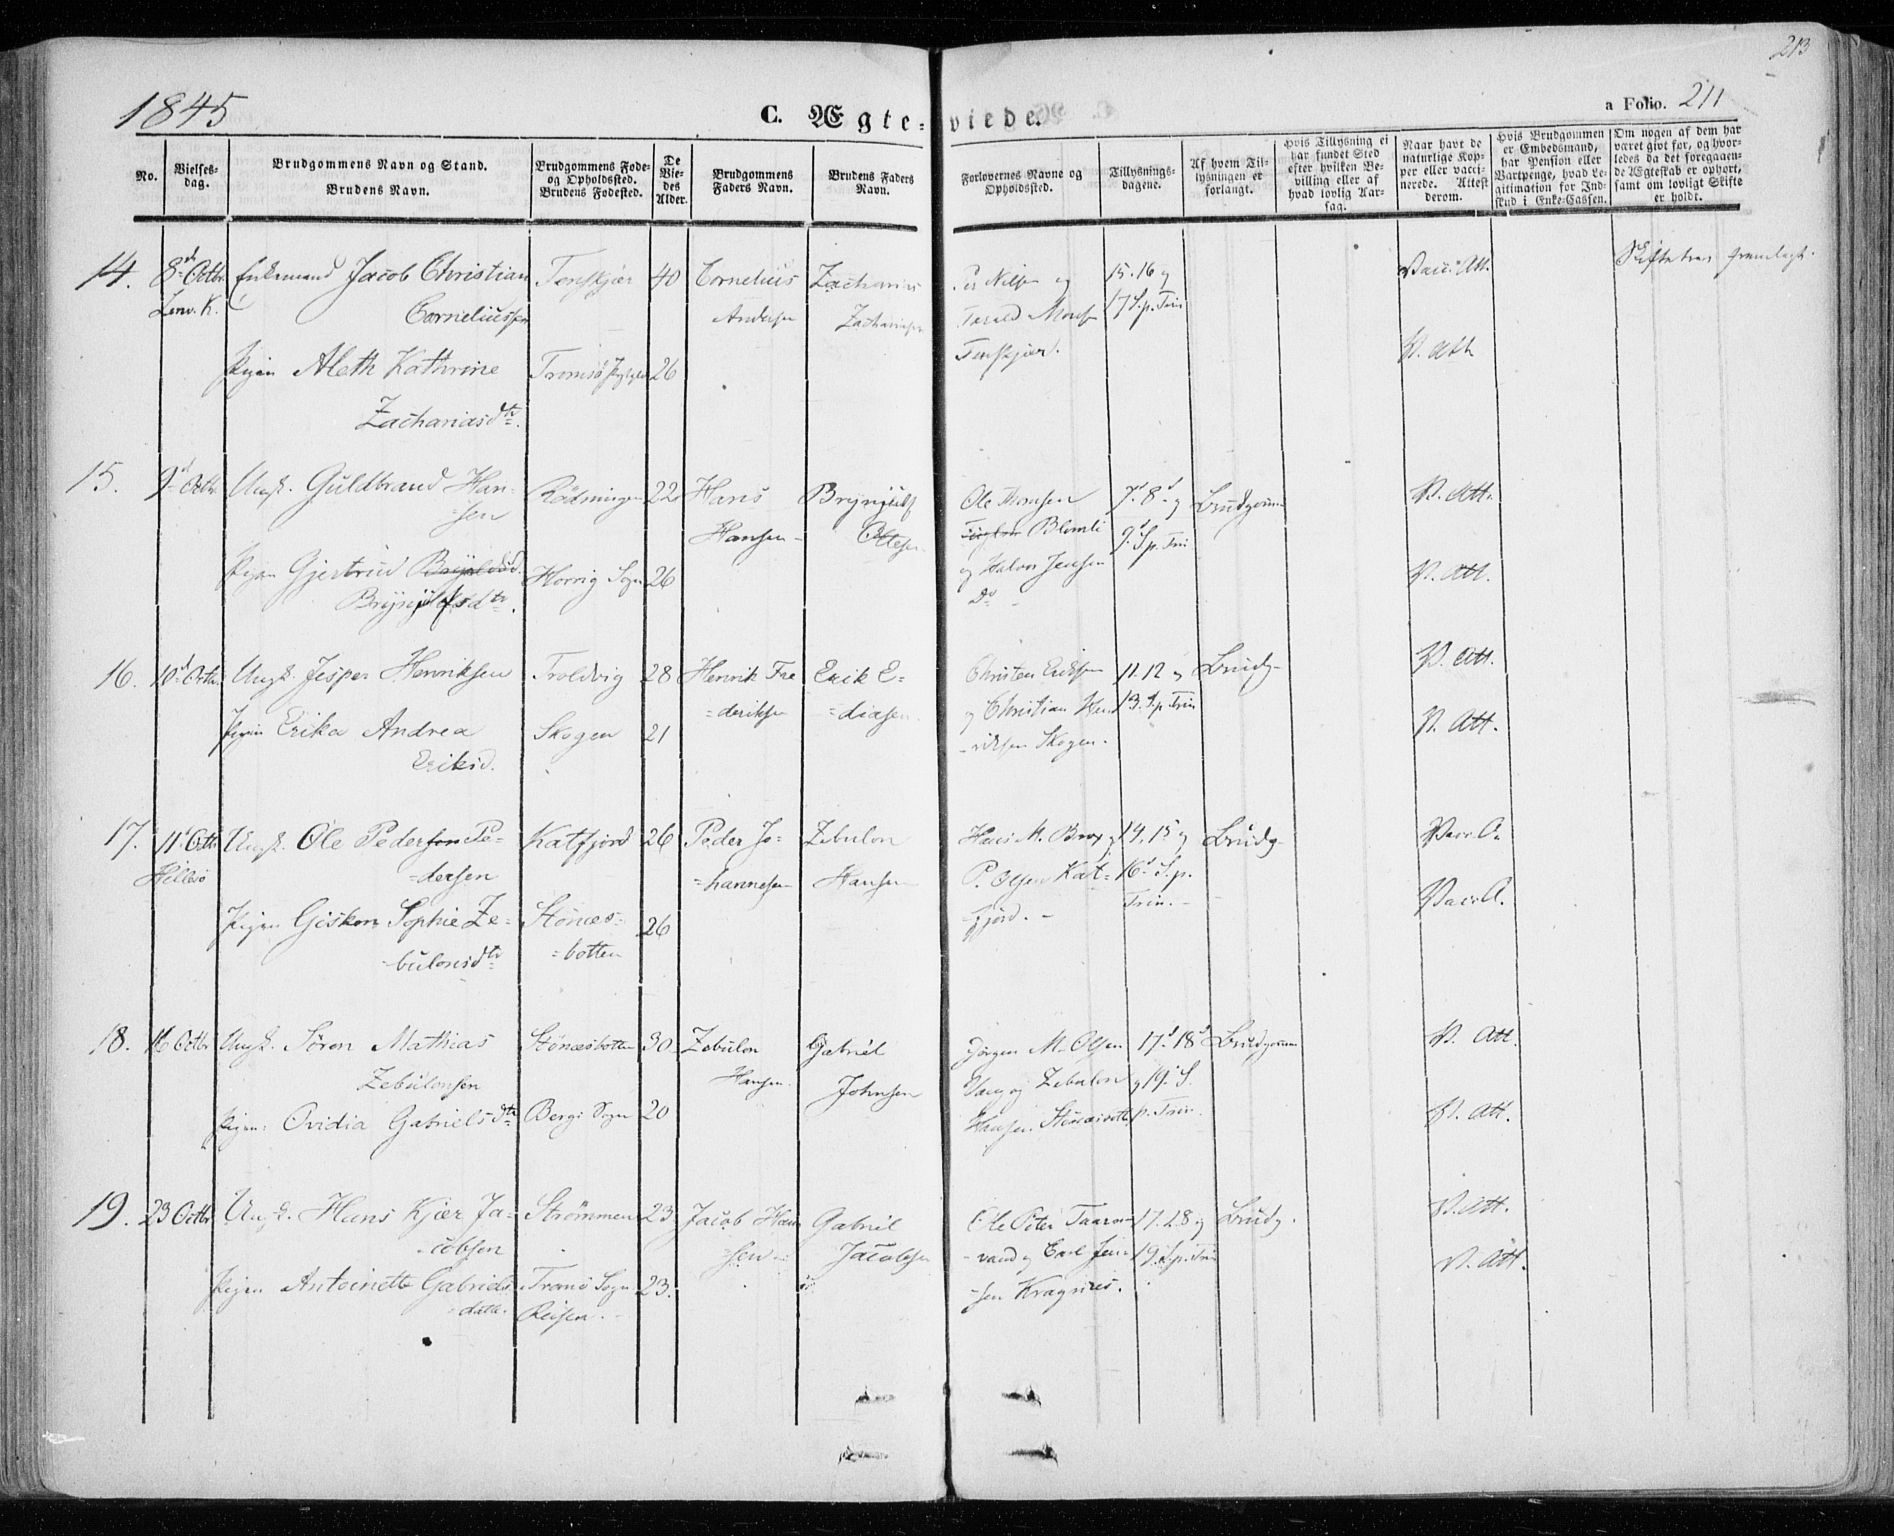 213
1845
C. Ægte-viede.
a Folio. 211
No.
Vielses-dag.
Brudgommens Navn og Stand.
Brudens Navn.
Brudgommens Føde- og Opholdssted.
Brudens Fødested.
De Viedes Alder.
Brudgommens Faders Navn.
Brudens Faders Navn.
Forlovernes Navne og Opholdssted.
Tillysnings-dagene.
Af hvem Tillysningen er forlangt.
Hvis Tillysning ei har fundet Sted efter hvilken Bevilling eller af hvad lovlig Aarsag.
Naar havt de naturlige Kopper eller vaccinerede. Attest derom.
Hvis Brudgommen er Embedsmand, har Pension eller Vartpenge, hvad Legitimation for Indskud i Enke-Cassen.
Om nogen af dem har været givt før, og hvorledes da det foregaaende Ægteskab er ophørt, samt om lovligt Skifte er holdt.
14. 8d Octbr Enkemand Jacob Christian Tenskjær 40 Cornelius Zacharias Nilsen og 15. 16 og Vacc. Att.
Lenv. K. Corneliussen Andersen Zachariasen Tarald Monsen 17 S. p. Trin
Tenskjær.
Pigen Aleth Kathrine Tromsø 26 V. Att
Zachariasdtr.
15. 9d Octbr. Ungk. Guldbrand Han- 22 Hans Brynjulf Ole Thomsen 7d 8d og Brudgom V. Att.
sen Hansen Ottesen Blomli 9d S. p. Trin
Pigen Gjertrud Sogn 26 og Halvor Jensen V. Att.
Brynjulfsdtr. Do
16. 10d Octbr. Ungk. Jesper Henriksen Troldvig 28 Henrik Fre Erik E- Christen Eriksen 11. 12 og Brudg- V. Att.
=deriksen =diasen og Christian Hen 13. S. p. Trin
Pigen Erika Andrea Skogen 21 -riksen Skogen. V. Att.
Eriksd.
17. 11d Octbr Ungk. Ole Pedersen Pe- Katfjord 26 Peder Jo- Zebulon Hans M. Brox og 14. 15 og Brudg- Vacc. A.
Hillesø =dersen =hannesen Hansen P. Olsen Kat- 16d S. p.
Pigen Gisken Sophie Ze- Stønæs- 26 -fjord. Trin. Vacc A.
-bulonsdtr =botten
18. 16 Octbr Ungk. Sören Mathias Stønæsbotten 30 Zebulon Gabriel Jörgen M. Olsen 17d 18d Brudgom V. Att.
Zebulonsen Hansen. Johnsen og Zebulon og 19d S.
Pigen: Ovidia Gabrielsdtr Bergs Sogn 20 Hansen Stønæsbott. p. Trin. V. Att.
19. 23 Octbr Ungk. Hans Kjær Ja- Strömmen 23 Jacob Han Gabriel Ole Peter Taarn- 17. 18 og Brudg. V. Att.
-cobsen =sen Jacobsen -vand og Carl Jen- 19. S. p. Trin
Pigen Antoinette Gabriels Tromsø Sogn 23. -sen Kragnæs. V. Att.
=datter. Reisen.